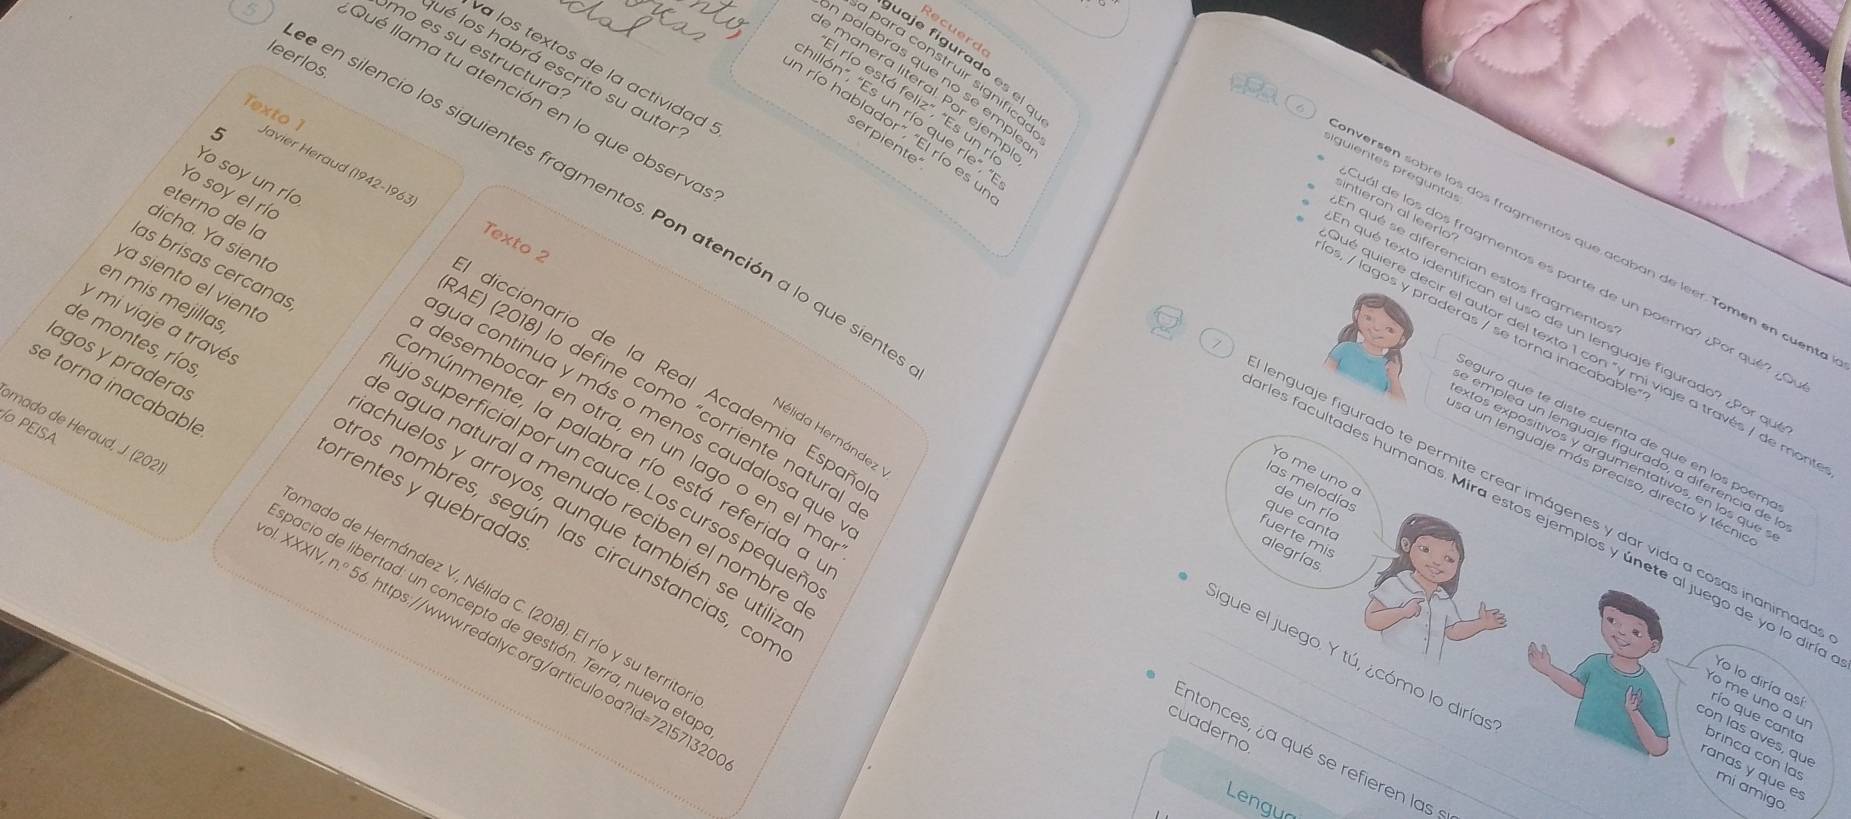 va los textos de la actividad 5.
qué los habrá escrito su autor?
omo es su estructura?
¿Qué llama tu atención en lo que observas?
Recuerda
guaje figurado es el que
sa para construir significados
on palabras que no se emplean
de manera literal. Por ejemplo,
"El río está feliz", "Es un río
chillón", "Es un río que ríe", "Es
un río hablador", "El río es una
serpiente".
5
Lee en silencio los siguientes fragmentos. Pon atención a lo que sientes al
leerlos.
Texto 1
Javier Heraud (1942-1963)
5
Yo soy un río.
Yo soy el río
eterno de la
dicha. Ya siento
las brisas cercanas,
ya siento el viento
en mis mejillas,
y mi viaje a través
de montes, ríos,
lagos y praderas
se torna inacabable.
Tomado de Heraud, J. (2021).
río PEISA
Texto 2
Nélida Hernández V.
El diccionario de la Real Academia Española
(RAE) (2018) lo define como "corriente natural de
agua continua y más o menos caudalosa que va
a desembocar en otra, en un lago o en el mar".
Comúnmente, la palabra río está referida a un
flujo superficial por un cauce. Los cursos pequeños
de agua natural a menudo reciben el nombre de
riachuelos y arroyos, aunque también se utilizan
otros nombres, según las circunstancias, como
torrentes y quebradas.
Tomado de Hernández V., Nélida C. (2018). El río y su territorio.
Espacio de libertad: un concepto de gestión. Terra, nueva etapa,
vol. XXXIV, n.º 56. https://www.redalyc.org/articulo.oa?id=72157132006
6
Conversen sobre los dos fragmentos que acaban de leer. Tomen en cuenta las
siguientes preguntas:
• ¿Cuál de los dos fragmentos es parte de un poema? ¿Por qué? ¿Qué
sintieron al leerlo?
• ¿En qué se diferencian estos fragmentos?
• ¿En qué texto identifican el uso de un lenguaje figurado? ¿Por qué?
• ¿Qué quiere decir el autor del texto 1 con "y mi viaje a través / de montes,
ríos, / lagos y praderas / se torna inacabable"?
Seguro que te diste cuenta de que en los poemas
se emplea un lenguaje figurado, a diferencia de los
textos expositivos y argumentativos, en los que se
usa un lenguaje más preciso, directo y técnico
7
El lenguaje figurado te permite crear imágenes y dar vida a cosas inanimadas o
darles facultades humanas. Mira estos ejemplos y únete al juego de yo lo diría así
Yo me uno a
las melodías
de un río
que canta
fuerte mis
alegrías
Yo lo diría así:
Yo me uno a un
río que canta
con las aves, que
brinca con las
ranas y que es
mi amigo.
• Sigue el juego. Y tú, ¿cómo lo dirías?
• Entonces, ¿a qué se refieren las
cuaderno.